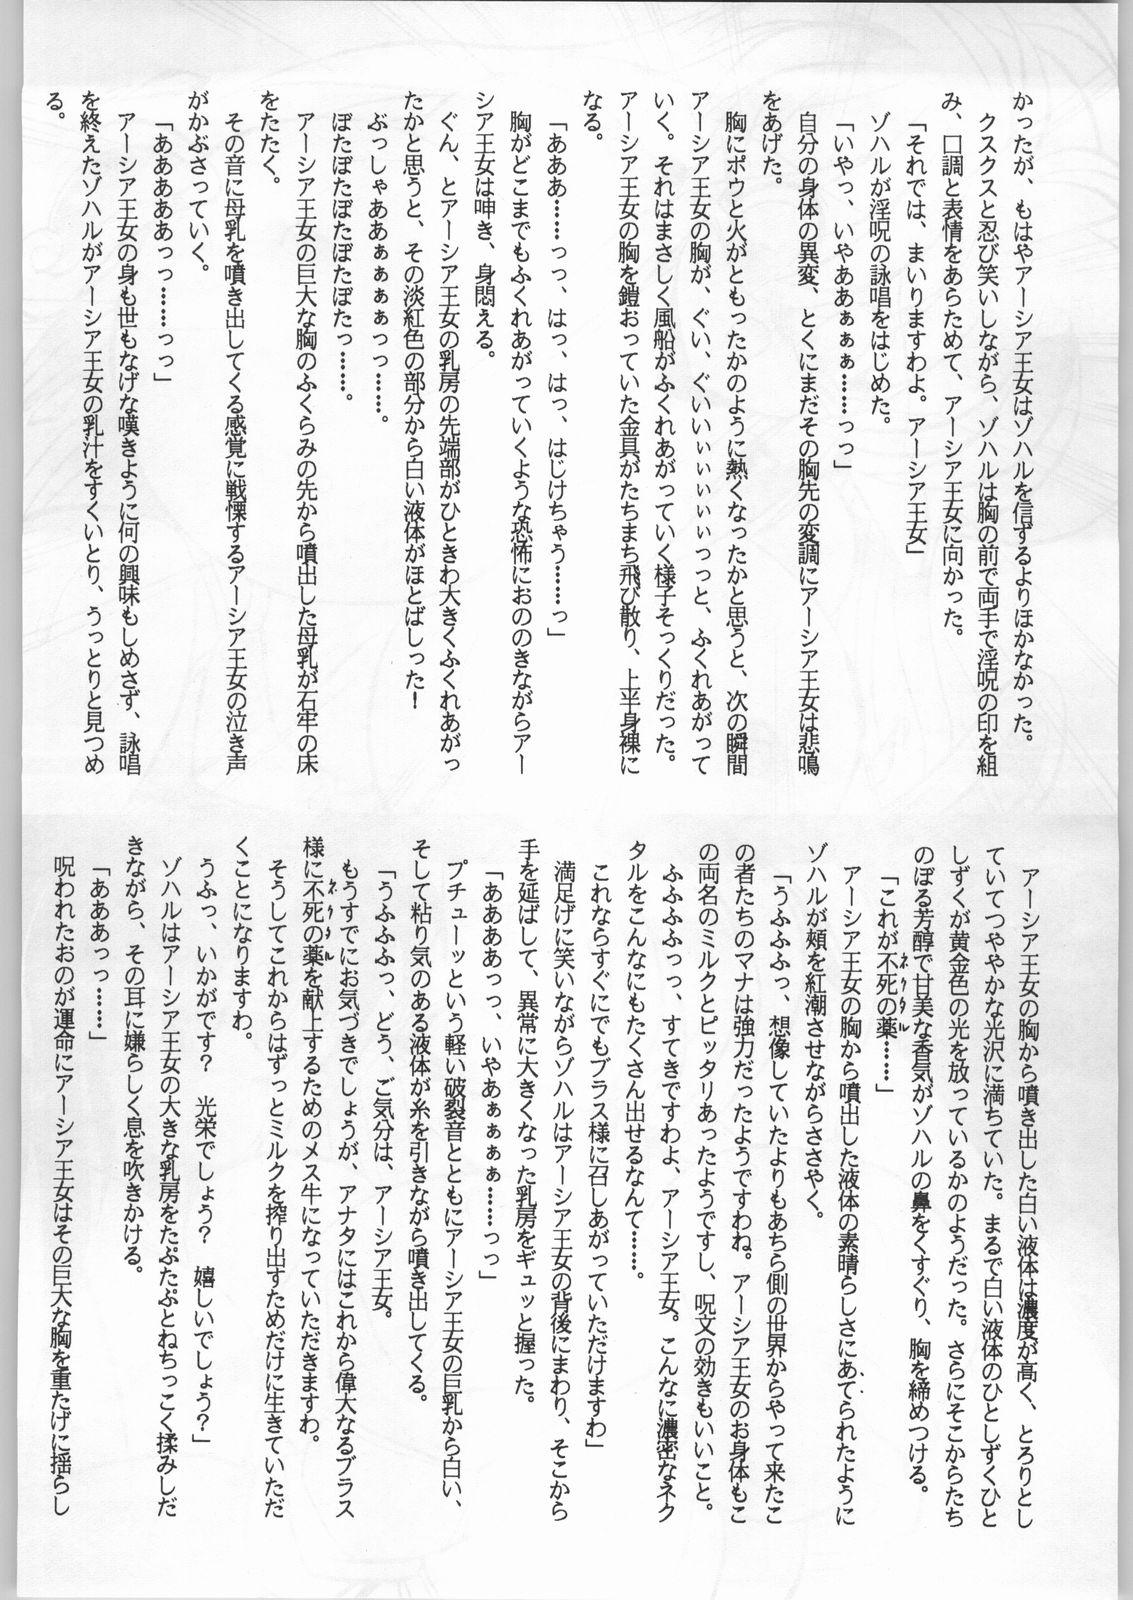 かったが、もはやアーシア王女はゾハルを信ずるよりほかなかった。
クスクスと忍び笑いしながら、ゾハルは胸の前で両手で淫呪の印を組
み、口調と表情をあらためて、アーシア王女に向かった。
「それでは、まいりますわよ。アーシア王女」
ゾハルが淫呪の詠唱をはじめた。
「いやっ、いやああぁぁぁ……っっ」
自分の身体の異変、とくにまだその胸先の変調にアーシア王女は悲鳴
をあげた。
胸にポウと火がともったかのように熱くなったかと思うと、次の瞬間
アーシア王女の胸が、ぐい、ぐいいぃぃぃぃぃっっと、ふくれあがって
いく。それはまさしく風船がふくれあがっていく様子そっくりだった。
アーシア王女の胸を鎧おっていた金具がたちまち飛び散り、上半身裸に
なる。
「あああ……っっ、はっ、はっ、はじけちゃう……っ」
胸がどこまでもふくれあがっていくような恐怖におののきながらアー
シア王女は呻き、身悶える。
ぐん、とアーシア王女の乳房の先端部がひときわ大きくふくれあがっ
たかと思うと、その淡紅色の部分から白い液体がほとばしった！
ぶっしゃああぁぁぁぁっっ……。
ぼたぼたぼたぼたぼたっ……。
アーシア王女の巨大な胸のふくらみの先から噴出した母乳が石牢の床
をたたく。
その音に母乳を噴き出してくる感覚に戦慄するアーシア王女の泣き声
がかぶさっていく。
「あああああっっ……っっ」
アーシア王女の身も世もなげな嘆きように何の興味もしめさず、詠唱
を終えたゾハルがアーシア王女の乳汁をすくいとり、うっとりと見つめ
る。
アーシア王女の胸から噴き出した白い液体は濃度が高く、とろりとし
ていてつややかな光沢に満ちていた。まるで白い液体のひとしずくひと
しずくが黄金色の光を放っているかのようだった。さらにそこからたち
のぼる芳醇で甘美な香気がゾハルの鼻をくすぐり、胸を締めつける。
「これが不死の薬……」
ネクタル
アーシア王女の胸から噴出した液体の素晴らしさにあてられたように
ゾハルが頬を紅潮させながらささやく。
「うふふふっ、想像していたよりもあちら側の世界からやって来たこ
の者たちのマナは強力だったようですわね。アーシア王女のお身体もこ
の両名のミルクとピッタリあったようですし、呪文の効きもいいこと。
ふふふふっっ、すてきですわよ、アーシア王女。こんなに濃密なネク
タルをこんなにもたくさん出せるなんて……。
これならすぐにでもブラス様に召しあがっていただけますわ」
満足げに笑いながらゾハルはアーシア王女の背後にまわり、そこから
手を延ばして、異常に大きくなった乳房をギュッと握った。
「ああああっっ、いやあぁぁぁぁ……っっ」
プチューッという軽い破裂音とともにアーシア王女の巨乳から白い、
そして粘り気のある液体が糸を引きながら噴き出してくる。
「うふふふっ、どう、ご気分は、アーシア王女。
もうすでにお気づきでしょうが、アナタにはこれから偉大なるブラス
様に不死の薬を献上するためのメス牛になっていただきますわ。
ネクタル
そうしてこれからはずっとミルクを搾り出すためだけに生きていただ
くことになりますわ。
うふっ、いかがです？　光栄でしょう？　嬉しいでしょう？」
ゾハルはアーシア王女の大きな乳房をたぷたぷとねちっこく揉みしだ
きながら、その耳に嫌らしく息を吹きかける。
「あああっっ……」
呪われたおのが運命にアーシア王女はその巨大な胸を重たげに揺らし